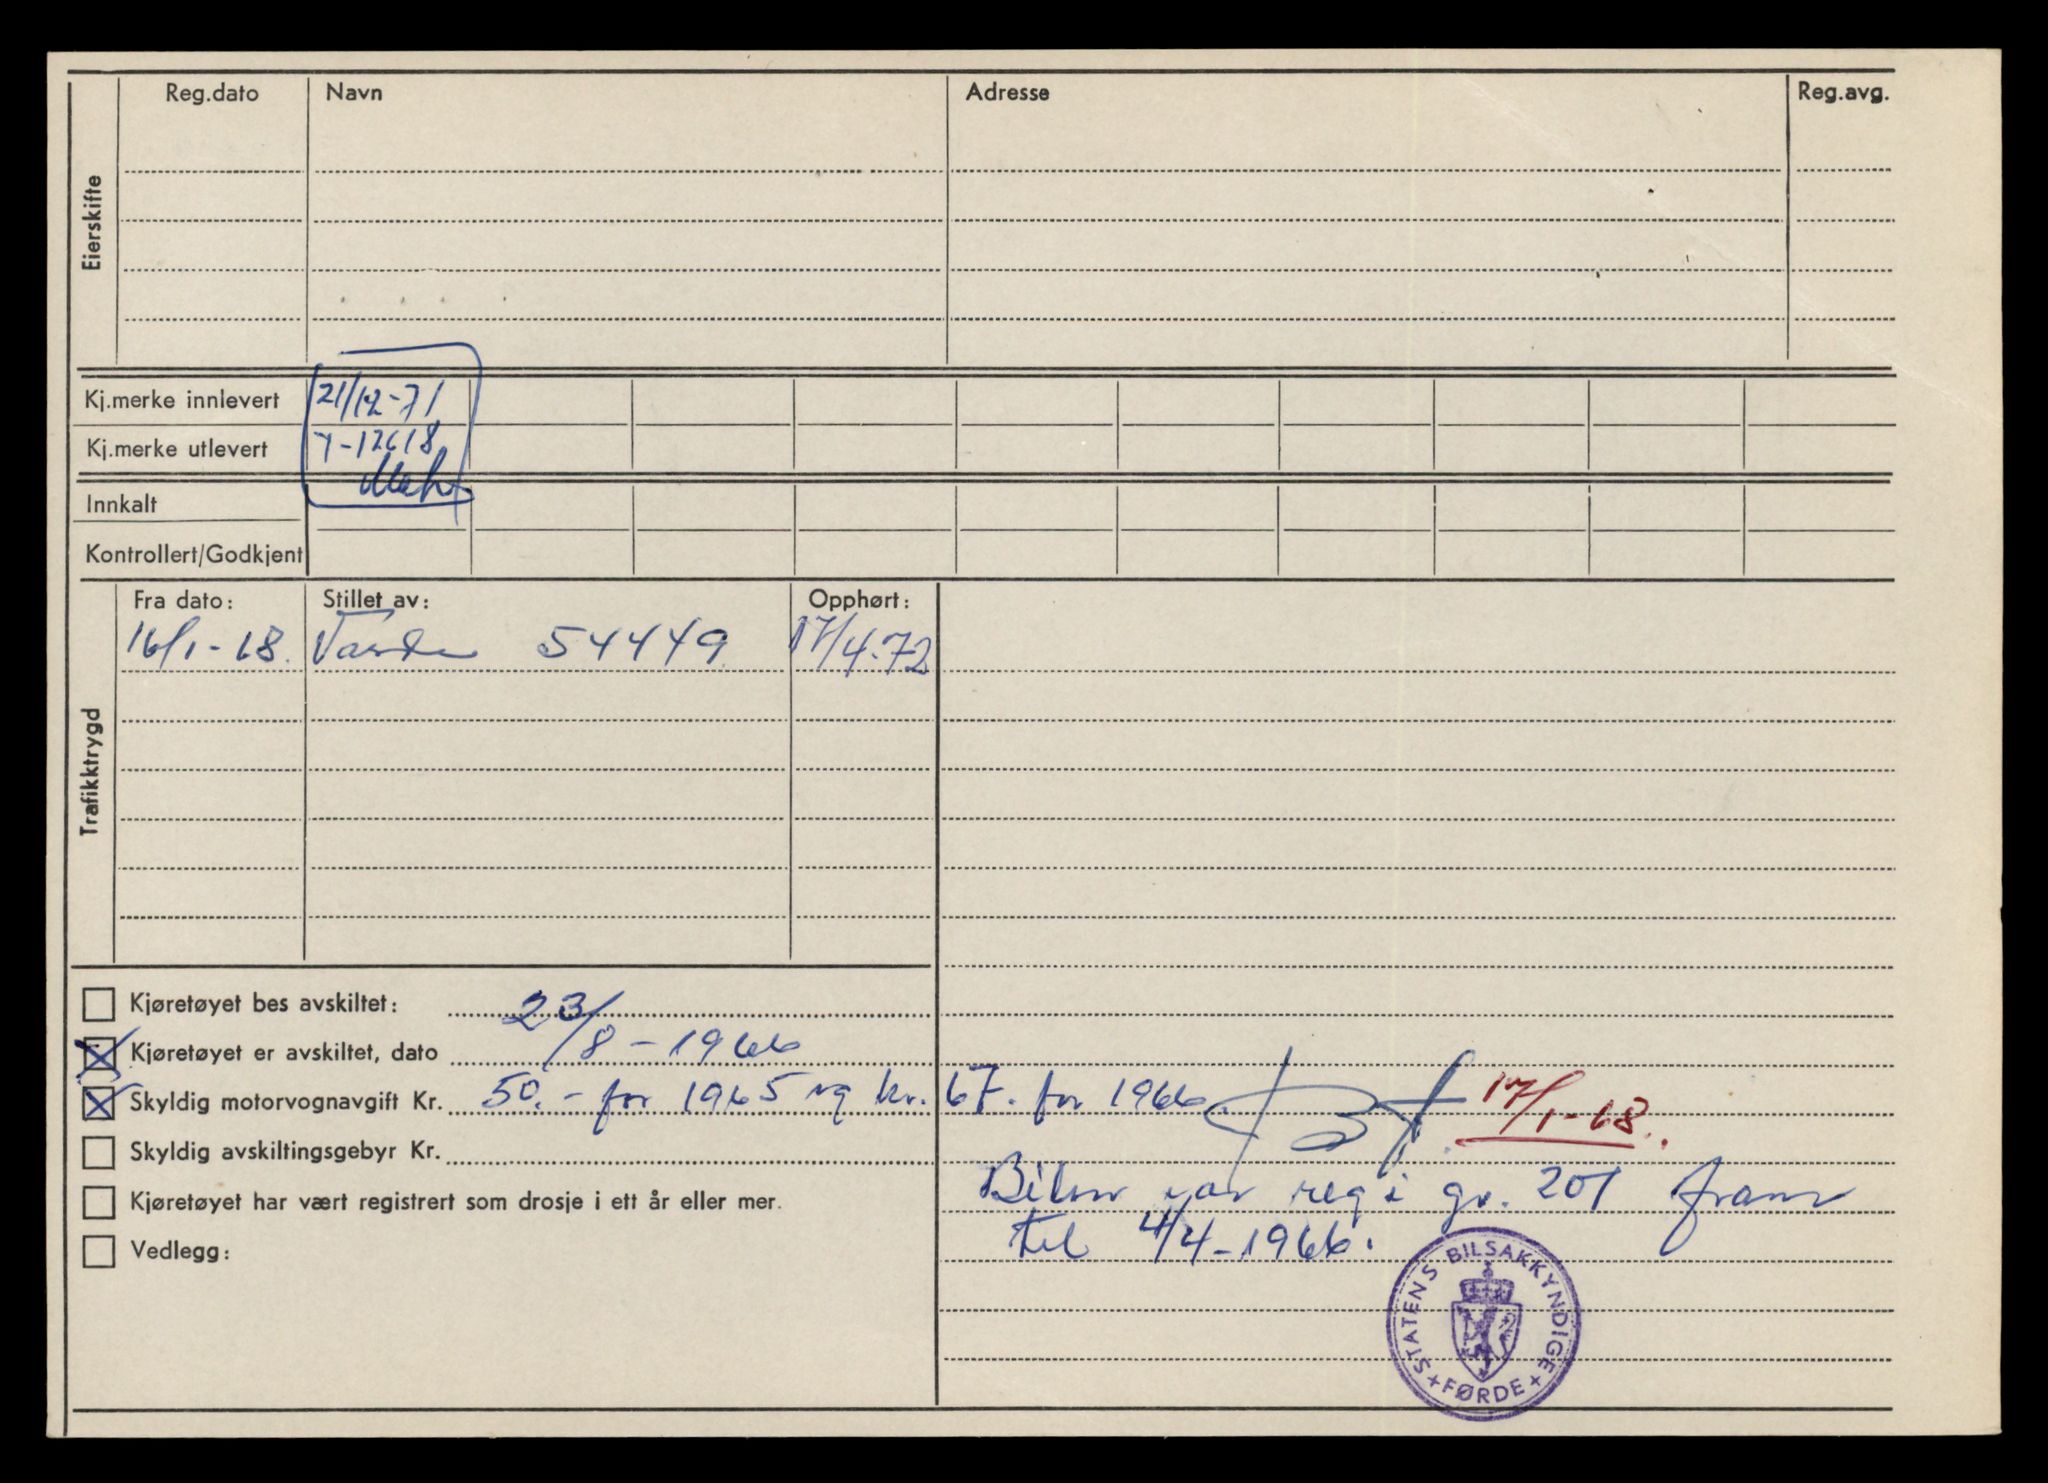 Reg.dato Navn Adresse Reg.avg.
Eierskifte
Kj.merke innlevert 21/12-71
Kj.merke utlevert 7-12618
Innkalt
Kontrollert/Godkjent
Trafikktrygd
Fra dato: Stillet av: Opphørt:
16/1-68. 54449 17/4.72
Kjøretøyet bes avskiltet:
Kjøretøyet er avskiltet, dato 23/8-1966
Skyldig motorvognavgift Kr. 50.- for 1965 og kr. 67. for 1966. 17/1-68.
Skyldig avskiltingsgebyr Kr.
Kjøretøyet har vært registrert som drosje i ett år eller mer.
Vedlegg:
Bilen var reg i gr. 201 fram
til 4/4-1966.
STATENS BILSAKKYNDIGE
+ FØRDE +